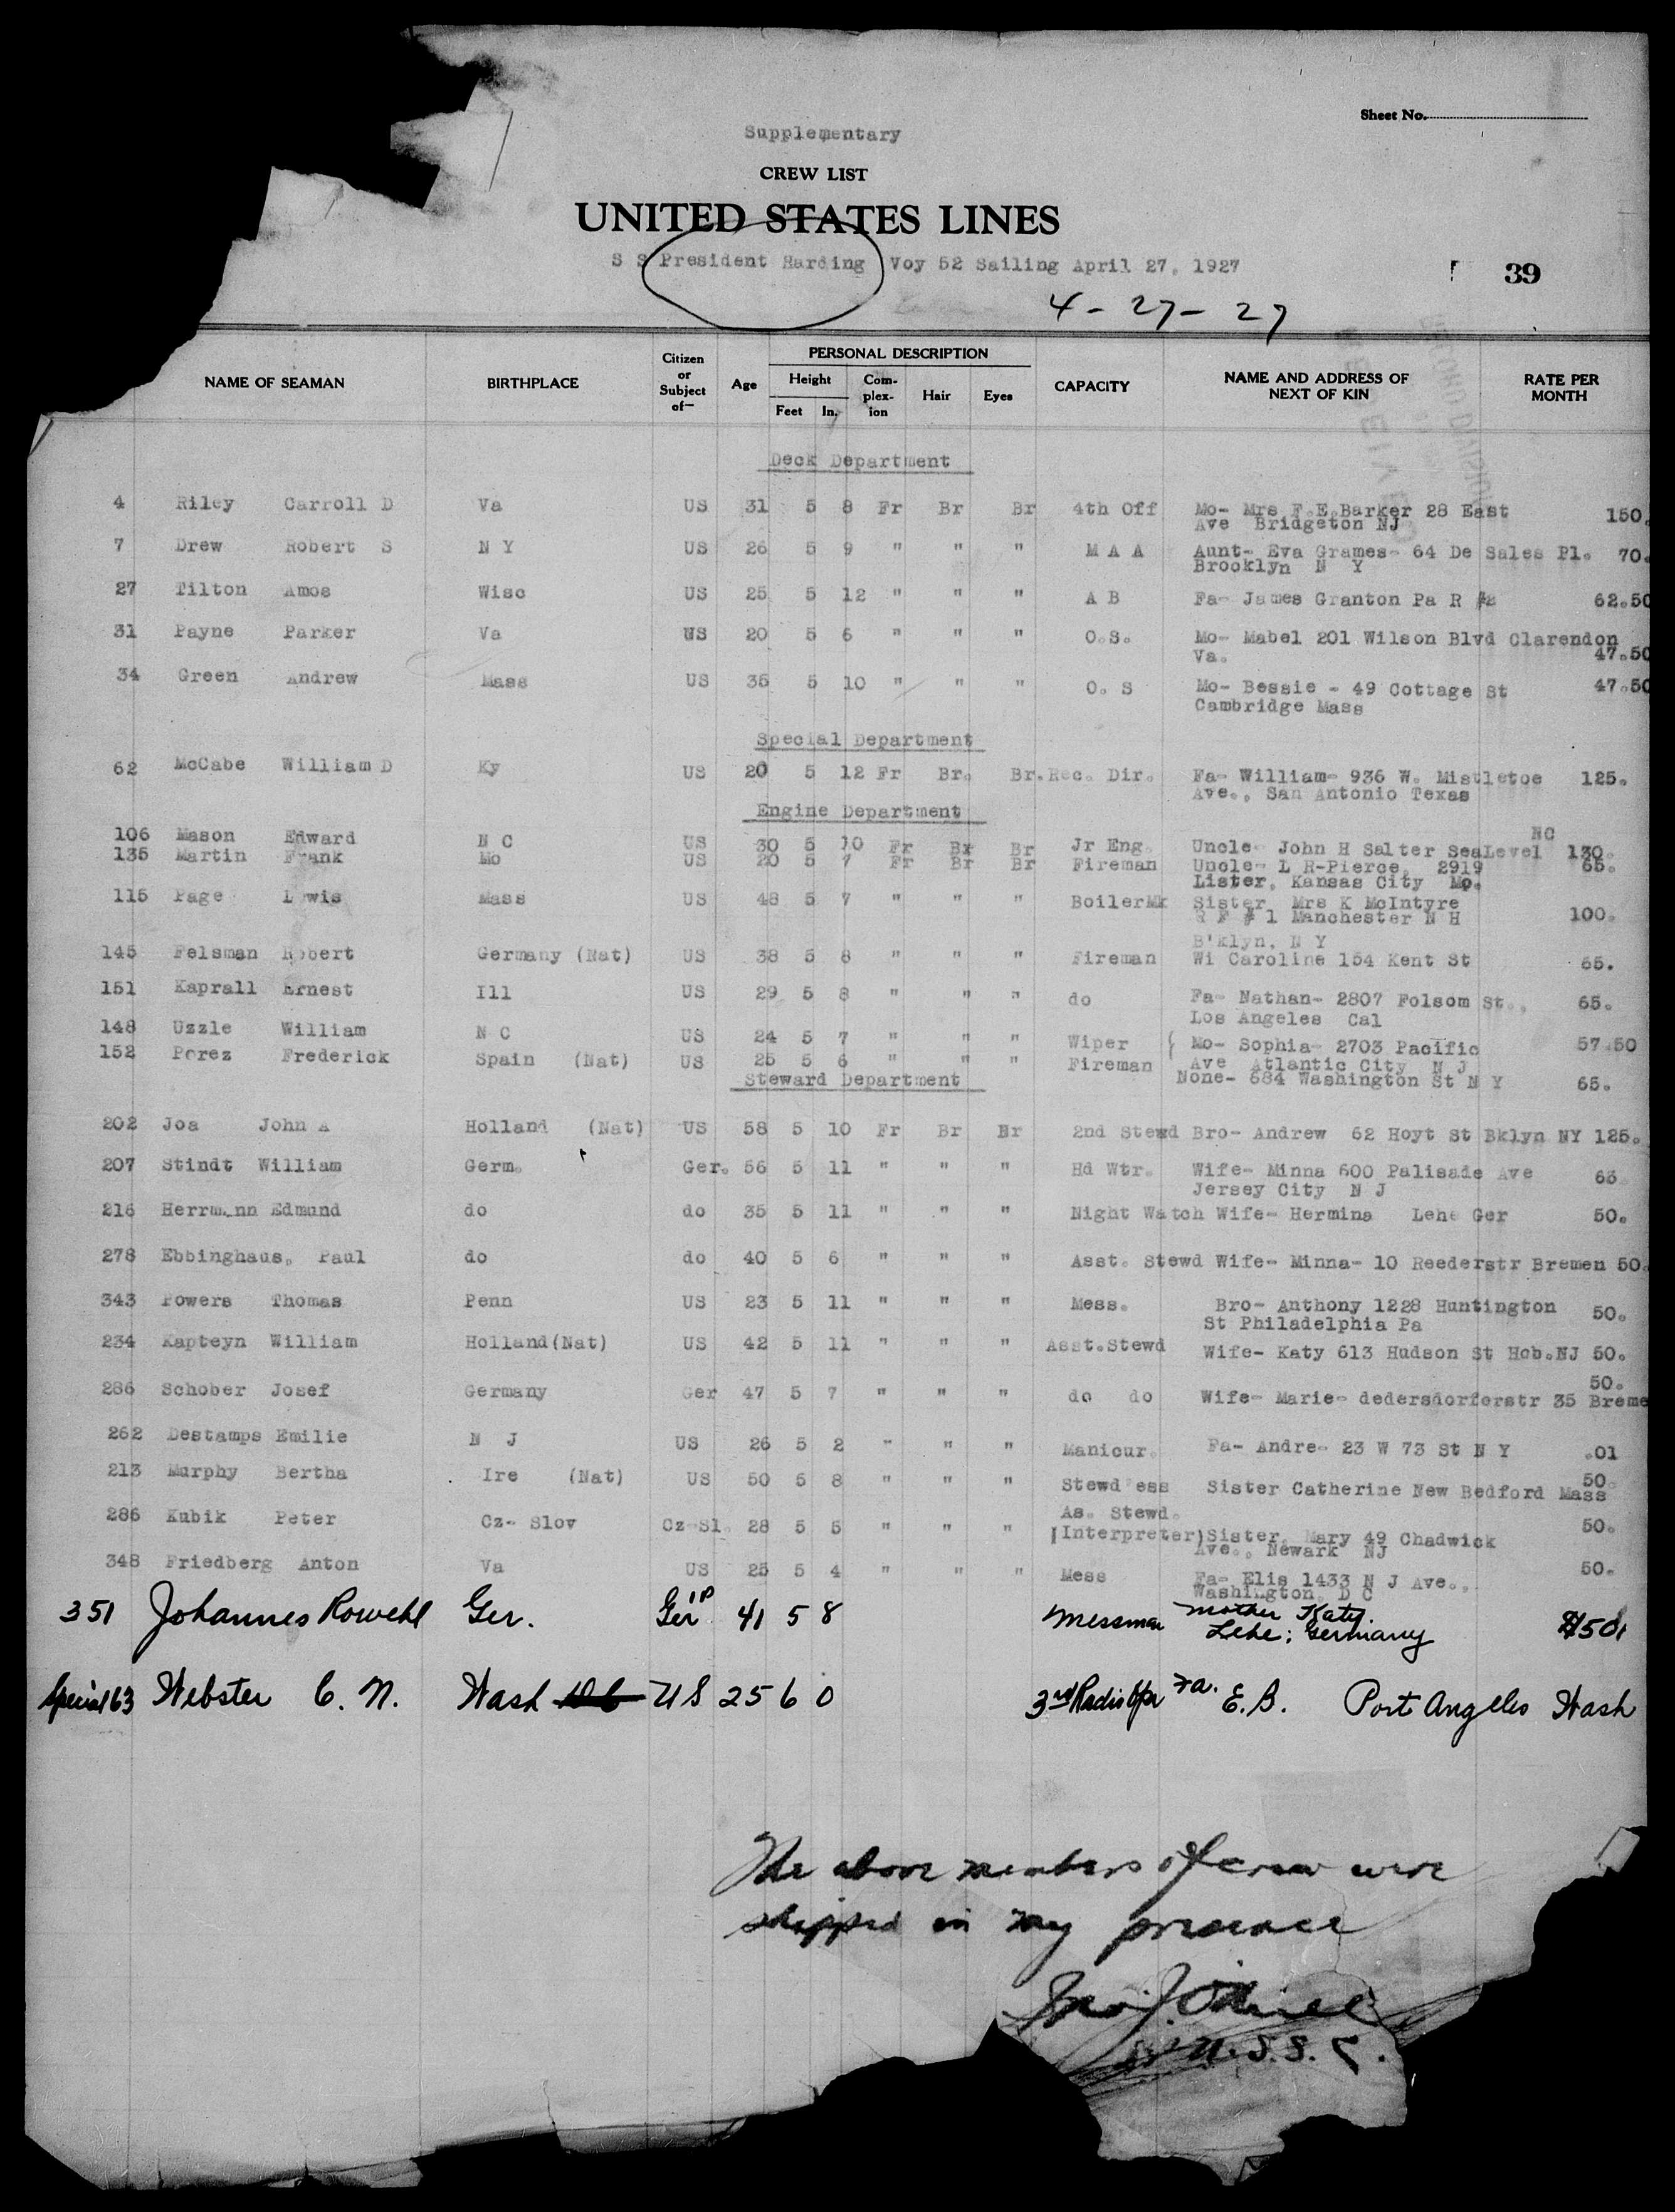 Sheet No.
Supplementary
CREW LIST
UNITED STATES LINES
S S President Harding Voy 52 Sailing April 27, 1927
39
4-27-27
NAME OF SEAMAN BIRTHPLACE Citizen or Subject of— Age PERSONAL DESCRIPTION Height Feet In. Com-plex-ion Hair Eyes CAPACITY NAME AND ADDRESS OF NEXT OF KIN RATE PER MONTH
Deck Department
4 Riley Carroll D Va US 31 5 8 Fr Br Br 4th Off Mo- Mrs F.E.Barker 28 East 150.
Ave Bridgeton NJ
7 Drew Robert S N Y US 26 5 9 " " " M A A Aunt- Eva Grames- 64 De Sales Pl. 70.
Brooklyn N Y
27 Tilton Amos Wisc US 25 5 12 " " " A B Fa- James Granton Pa R #2 62.50
31 Payne Parker Va US 20 5 6 " " " O.S. Mo- Mabel 201 Wilson Blvd Clarendon
Va. 47.50
34 Green Andrew Mass US 35 5 10 " " " O. S Mo- Bessie - 49 Cottage St 47.50
Cambridge Mass
Special Department
62 McCabe William D Ky US 20 5 12 Fr Br. Br. Rec. Dir. Fa- William- 936 W. Mistletoe 125.
Ave., San Antonio Texas
Engine Department
106 Mason Edward N C US 30 5 10 Fr Br Br Jr Eng. Uncle- John H Salter SeaLevel NC 130.
135 Martin Frank Mo US 20 5 7 Fr Br Br Fireman Uncle- L R-Pierce, 2919 65.
Lister, Kansas City Mo.
115 Page Lewis Mass US 48 5 7 " " " BoilerMk Sister, Mrs K McIntyre
R F # 1 Manchester N H 100.
B'klyn, N Y
145 Felsman Robert Germany (Nat) US 38 5 8 " " " Fireman Wi Caroline 154 Kent St 65.
151 Kaprall Ernest Ill US 29 5 8 " " " do Fa- Nathan- 2807 Folsom St., 65.
Los Angeles Cal
148 Uzzle William N C US 24 5 7 " " " Wiper { Mo- Sophia- 2703 Pacific 57.50
152 Perez Frederick Spain (Nat) US 25 5 6 " " " Fireman Ave Atlantic City N J
Steward Department None- 684 Washington St N Y 65.
202 Joa John A Holland (Nat) US 58 5 10 Fr Br Br 2nd Stewd Bro- Andrew 62 Hoyt St Bklyn NY 125.
207 Stindt William Germ. Ger. 56 5 11 " " " Hd Wtr. Wife- Minna 600 Palisade Ave 63
Jersey City N J
216 Herrmann Edmund do do 35 5 11 " " " Night Watch Wife- Hermina Lehe Ger 50.
278 Ebbinghaus, Paul do do 40 5 6 " " " Asst. Stewd Wife- Minna- 10 Reederstr Bremen 50.
343 Powers Thomas Penn US 23 5 11 " " " Mess. Bro- Anthony 1228 Huntington 50.
St Philadelphia Pa
234 Kapteyn William Holland(Nat) US 42 5 11 " " " Asst.Stewd Wife- Katy 613 Hudson St Hob.NJ 50.
50.
286 Schober Josef Germany Ger 47 5 7 " " " do do Wife- Marie- dedersdorferstr 35 Breme
262 Destamps Emilie N J US 26 5 2 " " " Manicur. Fa- Andre- 23 W 73 St N Y .01
213 Murphy Bertha Ire (Nat) US 50 5 8 " " " Stewd'ess Sister Catherine New Bedford Mass 50.
As. Stewd.
286 Kubik Peter Cz- Slov Cz-Sl. 28 5 5 " " " (Interpreter)Sister, Mary 49 Chadwick 50.
Ave., Newark NJ
348 Friedberg Anton Va US 25 5 4 " " " Mess Fa- Elis 1433 N J Ave., 50.
Washington D C
351 Johannes Rowehl Ger. Ger 1P 41 5 8 Messman Mother Katy. $50.
Lehe; Germany
Special 63 Webster C. N. Wash US 25 6 0 3rd Radio Opr Fa. E.B. Port Angeles Wash
The above members of crew were
shipped in my presence
U.S.S.C.